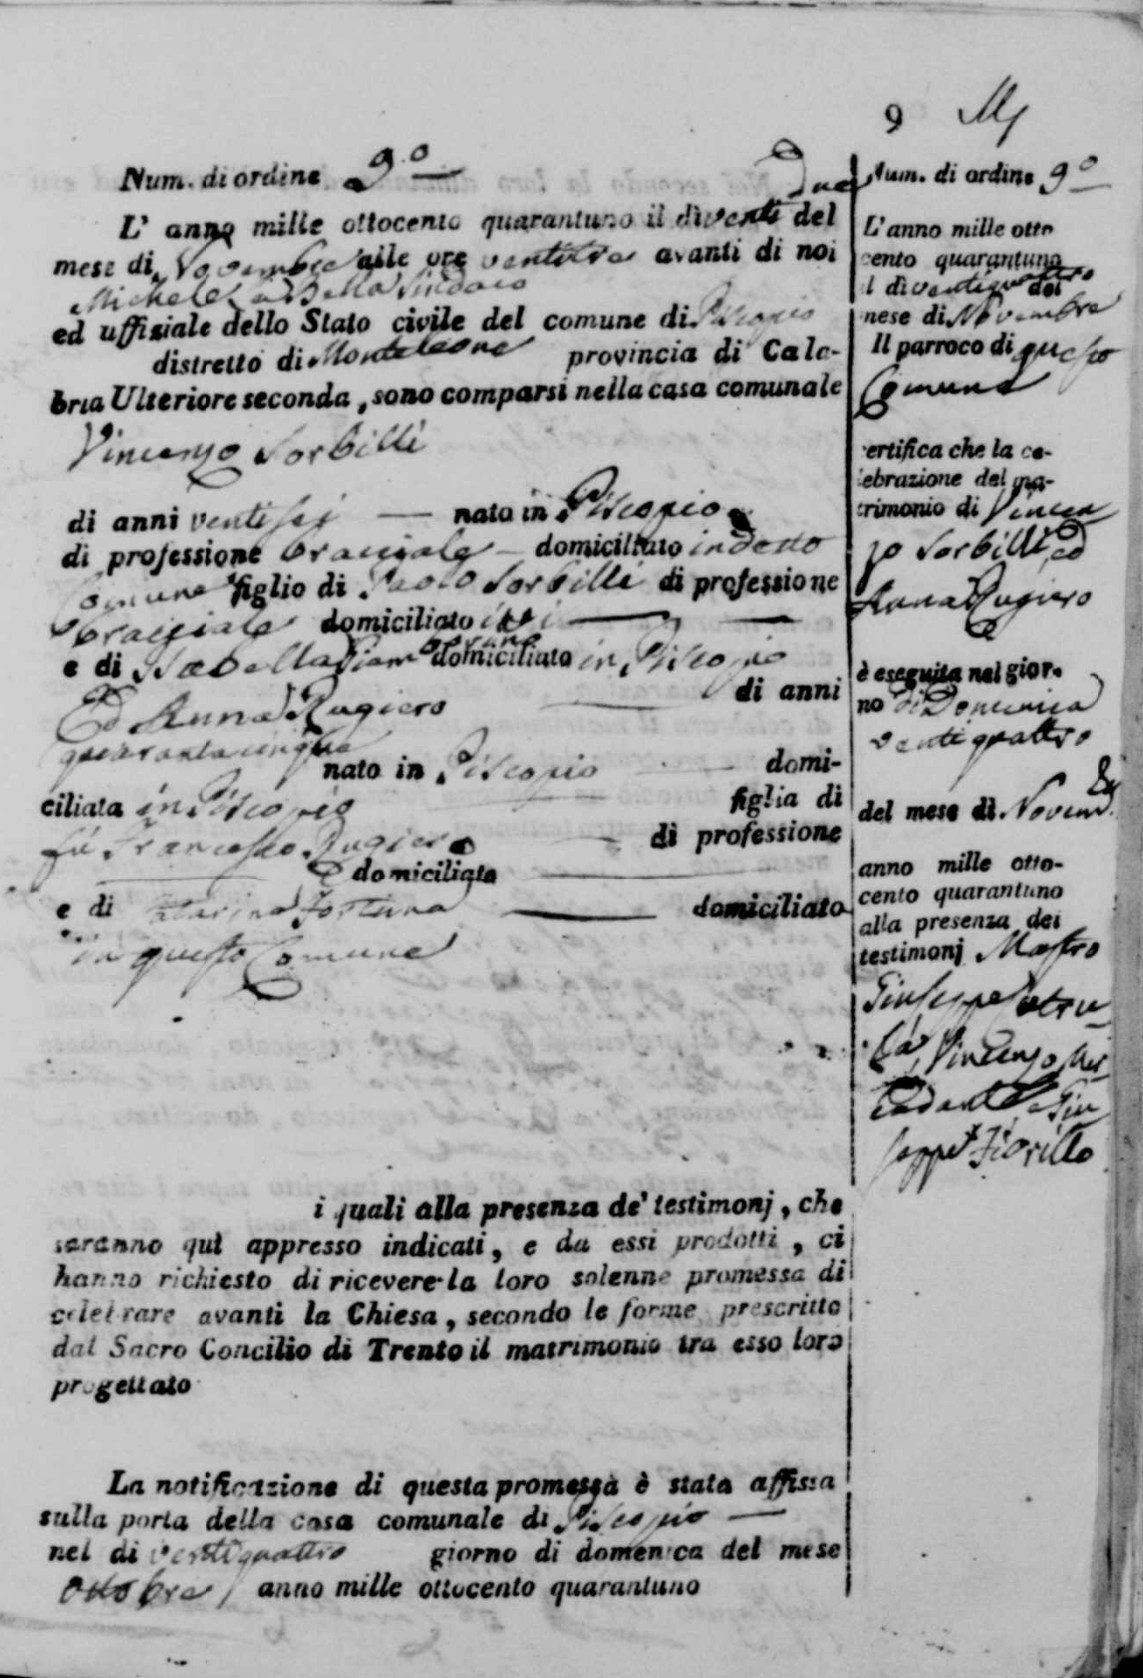 9
Num. di ordine 9.o
L' anno mille ottocento quarantuno il di venti due del
mese di Novembre alle ore ventitre avanti di noi
Michele La Bella Sindaco
ed uffiziale dello Stato civile del comune di Piscopio
distretto di Monteleone provincia di Cala-
bria Ulteriore seconda, sono comparsi nella casa comunale
Vincenzo Sorbilli
di anni venti sei nato in Piscopio
di professione bracciale domiciliato in detto
Comune figlio di Paolo Sorbilli di professione
bracciale domiciliato ivi
e di Isabella domiciliata in Piscopio
Ed Anna Rugiero di anni
quarantacinque
nato in Piscopio domi-
ciliata in Piscopio figlia di
fu Francesco Rugiero di professione
domiciliato
e di Catarina Fortuna domiciliato
in questo Comune
i quali alla presenza de' testimonj, che
saranno quì appresso indicati, e da essi prodotti, ci
hanno richiesto di ricevere la loro solenne promessa di
celebrare avanti la Chiesa, secondo le forme prescritte
dal Sacro Concilio di Trento il matrimonio tra esso loro
progettato
La notificazione di questa promessa è stata affissa
sulla porta della casa comunale di Piscopio
nel di ventiquattro giorno di domenica del mese
Ottobre anno mille ottocento quarantuno
Num. di ordine 9o
L' anno mille otto
cento quarantuno
il di ventiquattro del
mese di Novembre
Il parroco di questo
Comune
certifica che la ce-
lebrazione del ma-
trimonio di Vincen
zo Sorbilli, ed
Anna Rugiero
è eseguita nel gior-
no di Domenica
ventiquattro
del mese di Novemb.
anno mille otto-
cento quarantuno
alla presenza dei
testimonj Mastro
Giuseppe
là, Vincenzo Mer
cadante e Giu
seppe Fiorillo